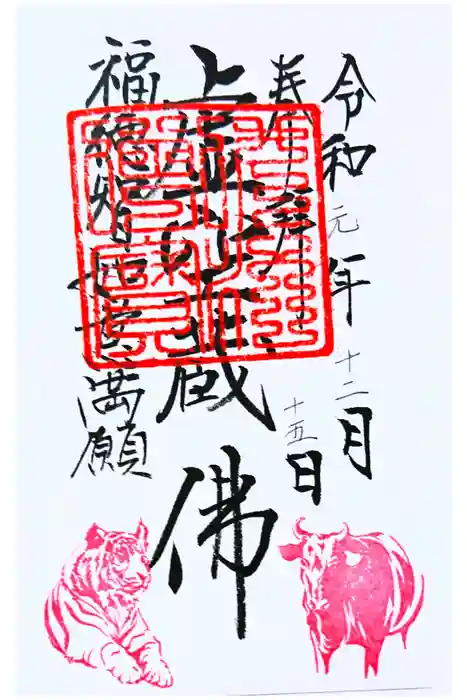 令和元年十二月十五日
奉拝
上虚空蔵佛
福徳智 満願